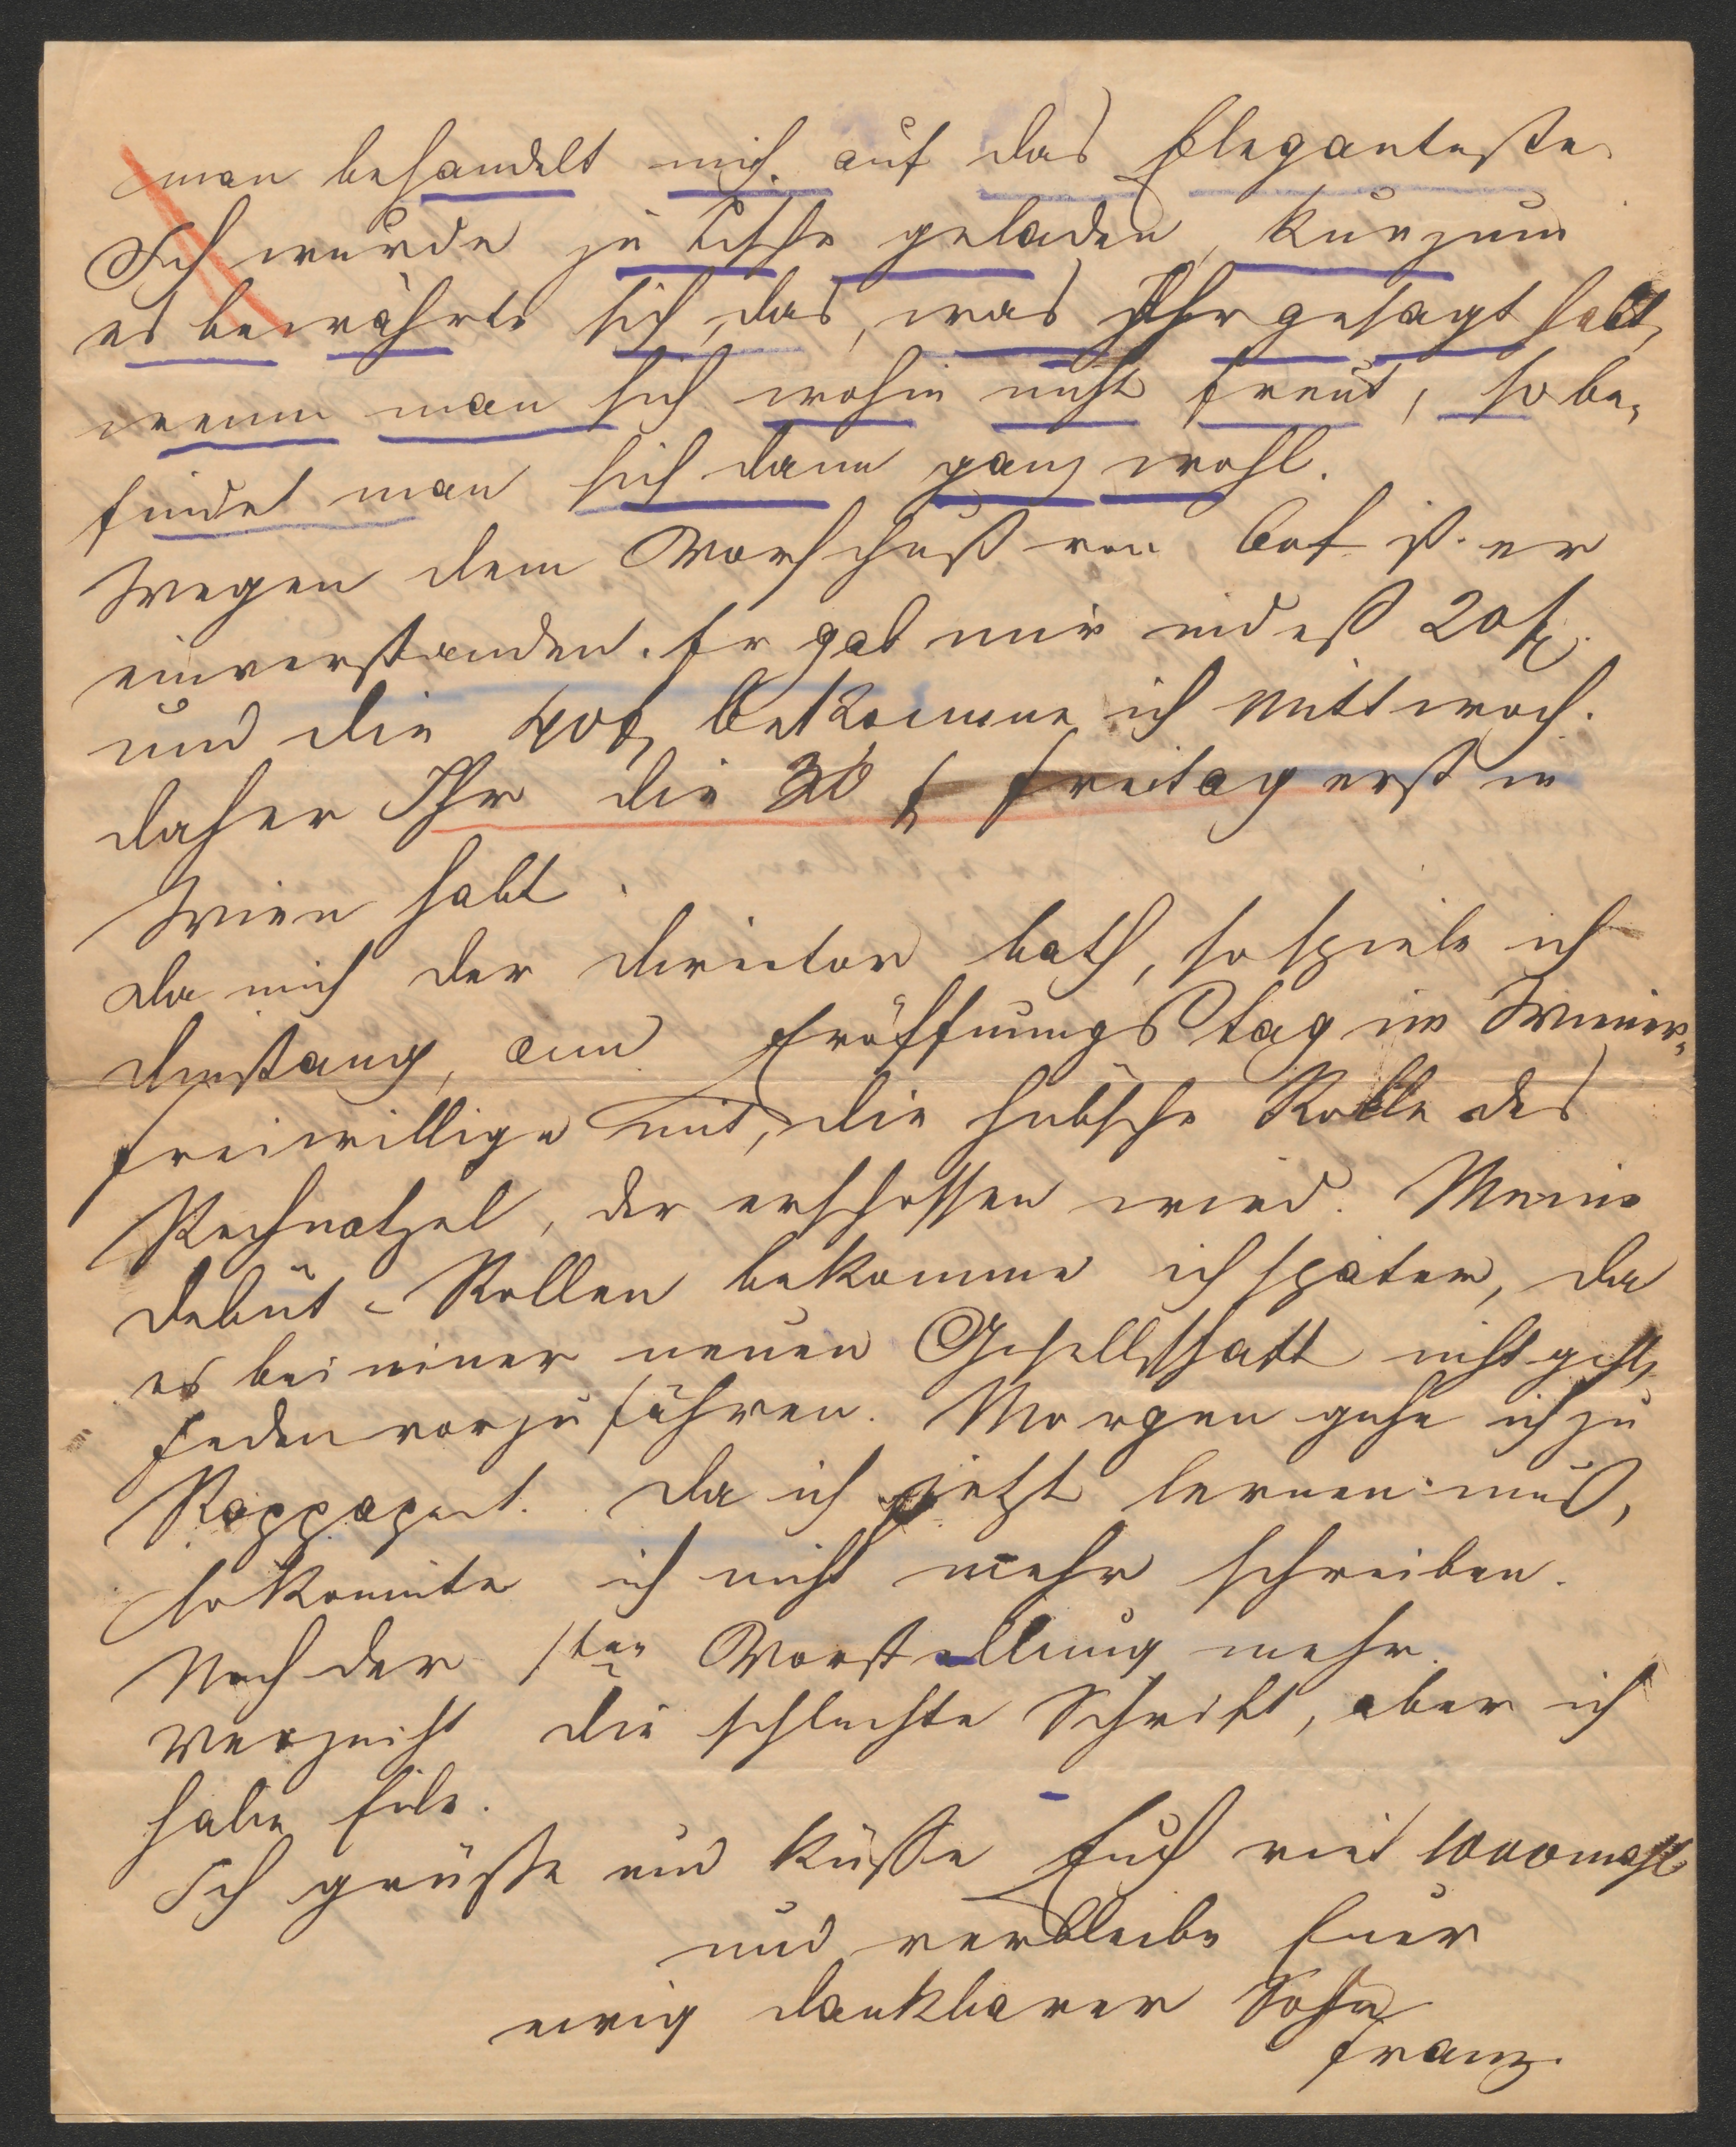 man behandelt mich auf das Eleganteste
Ich wurde zu Tische geladen, kurzum
es bewährte sich das, was Ihr gesagt habt,
wenn man sich wohin nicht freut, so be-
findet man sich dann ganz wohl.
Wegen dem Vorschuß von 60f ist er
einverstanden. Er gab mir indeß 20f.
und die 40f bekomme ich Mittwoch.
daher Ihr die 30 f Freitag erst in
Wien habt.
Da mich der Director bath, so spiele ich
Dinstang, am Eröffnungstag im Wiener-
freiwillige mit, die hübsche Rolle des
der erschossen wird. Meine
Debüt-Rollen bekomme ich später, da
es bei einer neuen Gesellschaft nicht geht,
Jeden vorzuführen. Morgen gehe ich zu
Rappaport. Da ich jetzt lernen muß,
so konnte ich nicht mehr schreiben.
Nach der 1ten Vorstellung mehr.
Verzeiht die schlechte Schrift, aber ich
habe Eile.
Ich grüsse und küsse Euch viel 1000mahl
und verbleibe Euer
ewig dankbarer Sohn
Franz.